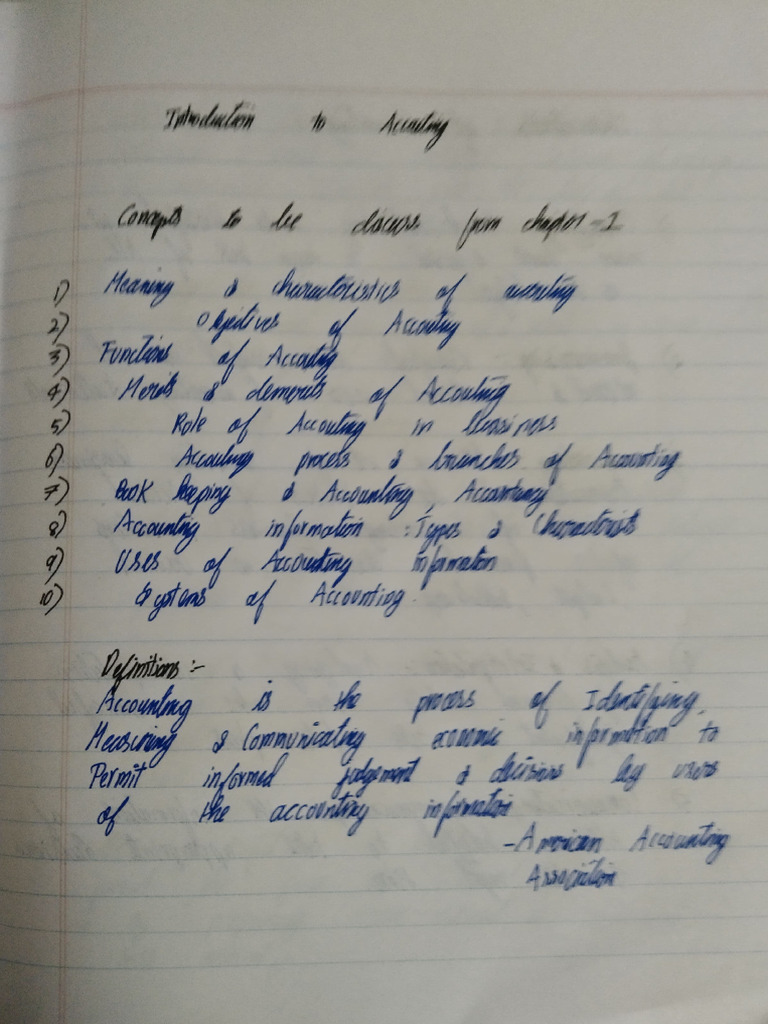 Introduction to Accouting
Concepts to be discuss from chapter - I
1) Meaning & characteristics of accouting
2) Objectives of Accouting
3) Functions of Accouting
4) Merits & demerits of Accouting
5) Role of Accouting in bussiness
6) Accouting process & branches of Accounting
7) Book keeping & Accounting, Accountancy
8) Accounting information : Types & Characterists
9) Uses of Accounting information
10) Systems of Accounting.
Definitions :-
Accounting is the process of Identifying,
Measuring & Communicating economic information to
Permit informed judgement & decisions by users
of the accounting information
- American Accounting
Association